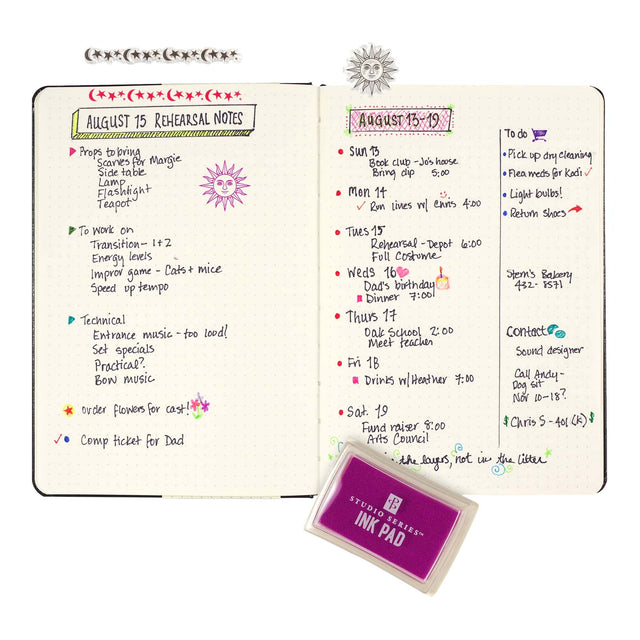 AUGUST 15 REHEARSAL NOTES
Props to bring
Scarves for Margie
Side table
Lamp
Flashlight
Teapot
To work on
Transition - 1 + 2
Energy levels
Improv game - Cats + mice
Speed up tempo
Technical
Entrance music - too loud!
Set specials
Practical?
Bow music
order flowers for cast!
Comp ticket for Dad
AUGUST 13-19
Sun 13
Book club - Jo's house
Bring dip 5:00
Mon 14
Run lines w/ Chris 4:00
Tues 15
Rehearsal - Depot 6:00
Full Costume
Weds 16
Dad's birthday
Dinner 7:00
Thurs 17
Oak School 2:00
Meet teacher
Fri 18
Drinks w/ Heather 7:00
Sat. 19
Fund raiser 8:00
Arts Council
To do
Pick up dry cleaning
Flea meds for Kodi
Light bulbs!
Return shoes
Stern's Bakery
432-8571
Contact
Sound designer
Call Andy -
Dog sit
Nov 10-18?
$ Chris S - 401(k) $
the layers, not in the litter
STUDIO SERIES™
INK PAD